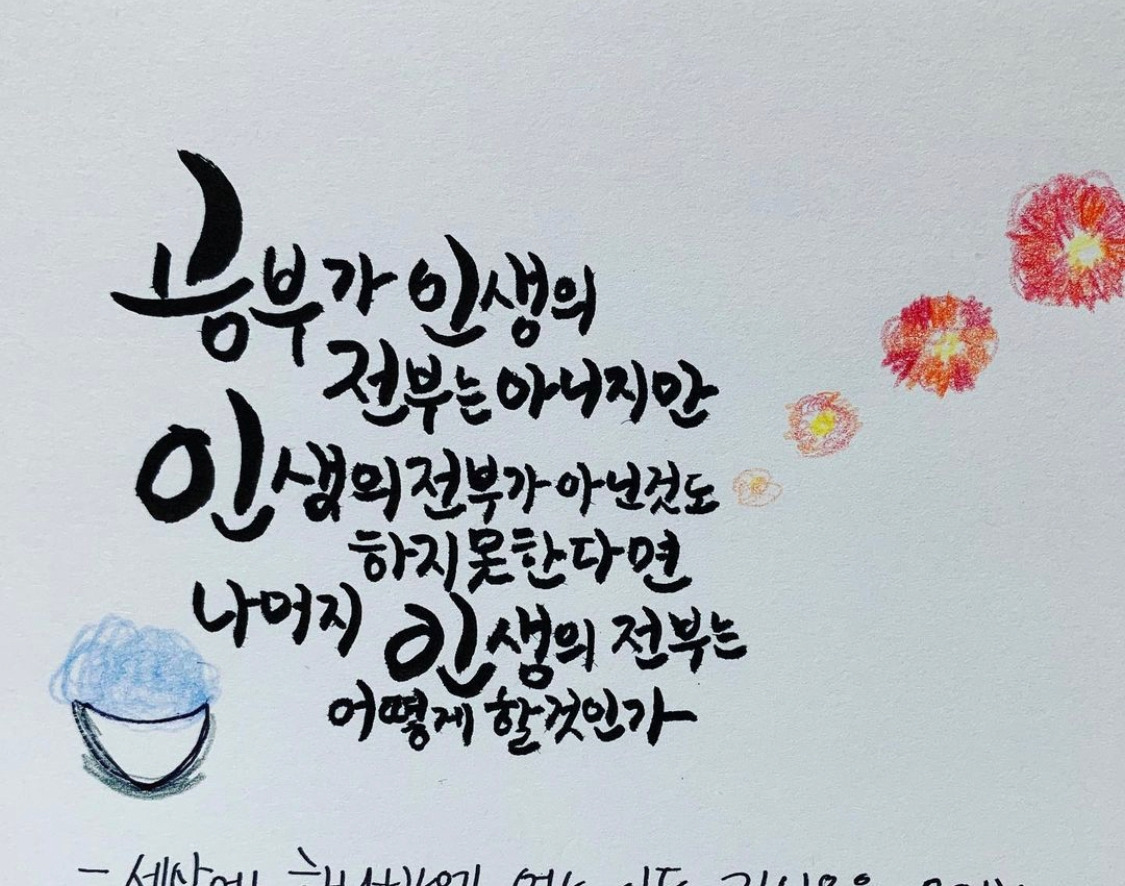 공부가 인생의
전부는 아니지만
인생의 전부가 아닌것도
하지못한다면
나머지 인생의 전부는
어떻게 할것인가
- 세상에